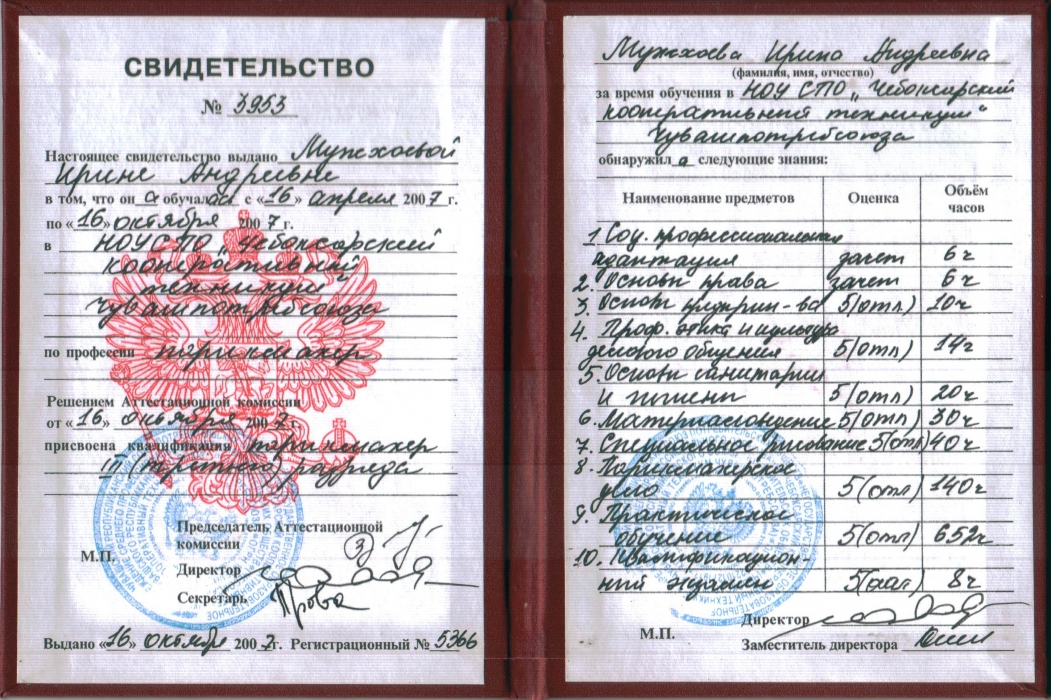 СВИДЕТЕЛЬСТВО
№ 3953
Настоящее свидетельство выдано Мужхоевой
Ирине Андреевне
в том, что он а обучалась с «16» апреля 2007 г.
по «16» октября 2007 г.
в НОУ СПО „Чебоксарский
кооперативный
техникум"
Чувашпотребсоюза
по профессии парикмахер
Решением Аттестационной комиссии
от «16» октября 2007 г.
присвоена квалификация парикмахер
III (третьего) разряда
Председатель Аттестационной
комиссии
М.П.
Директор
Секретарь
Выдано «16» октября 2007 г. Регистрационный № 5366
Мужхоева Ирина Андреевна
(фамилия, имя, отчество)
за время обучения в НОУ СПО „Чебоксарский
кооперативный техникум"
Чувашпотребсоюза
обнаружил а следующие знания:
Наименование предметов Оценка Объём часов
1. Соц. профессиональная
адаптация зачет 6ч
2. Основы права зачет 6ч
3. Основы 5(отл) 10ч
4. Проф. этика и культура
делового общения 5(отл) 14ч
5. Основы санитарии
и гигиены 5(отл) 20ч
6. Материаловедение 5(отл) 30ч
7. Специальное рисование 5(отл) 40ч
8. Парикмахерское
дело 5(отл) 140ч
9. Практическое
обучение 5(отл) 652ч
10. Квалификацион-
ный экзамен 5(отл) 8ч
Директор
М.П.
Заместитель директора